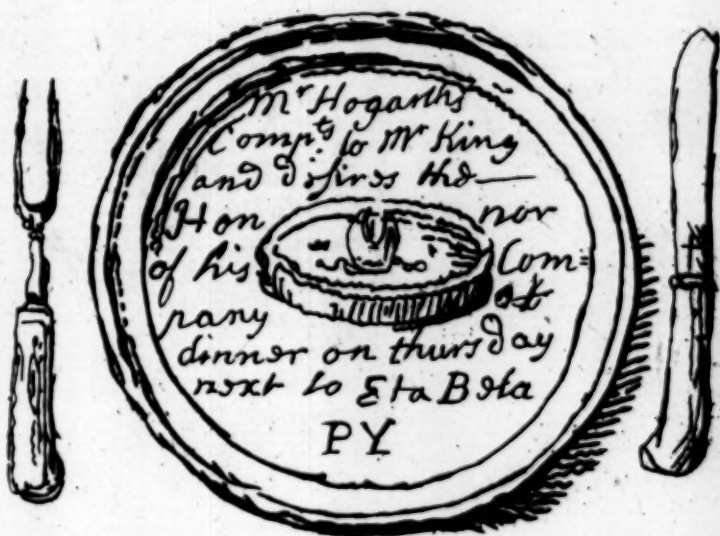 Mr Hogarth's
Compts to Mr King
and desires the
Honnor
of his Com=
pany at
dinner on thursday
next to Eta Beta
PY